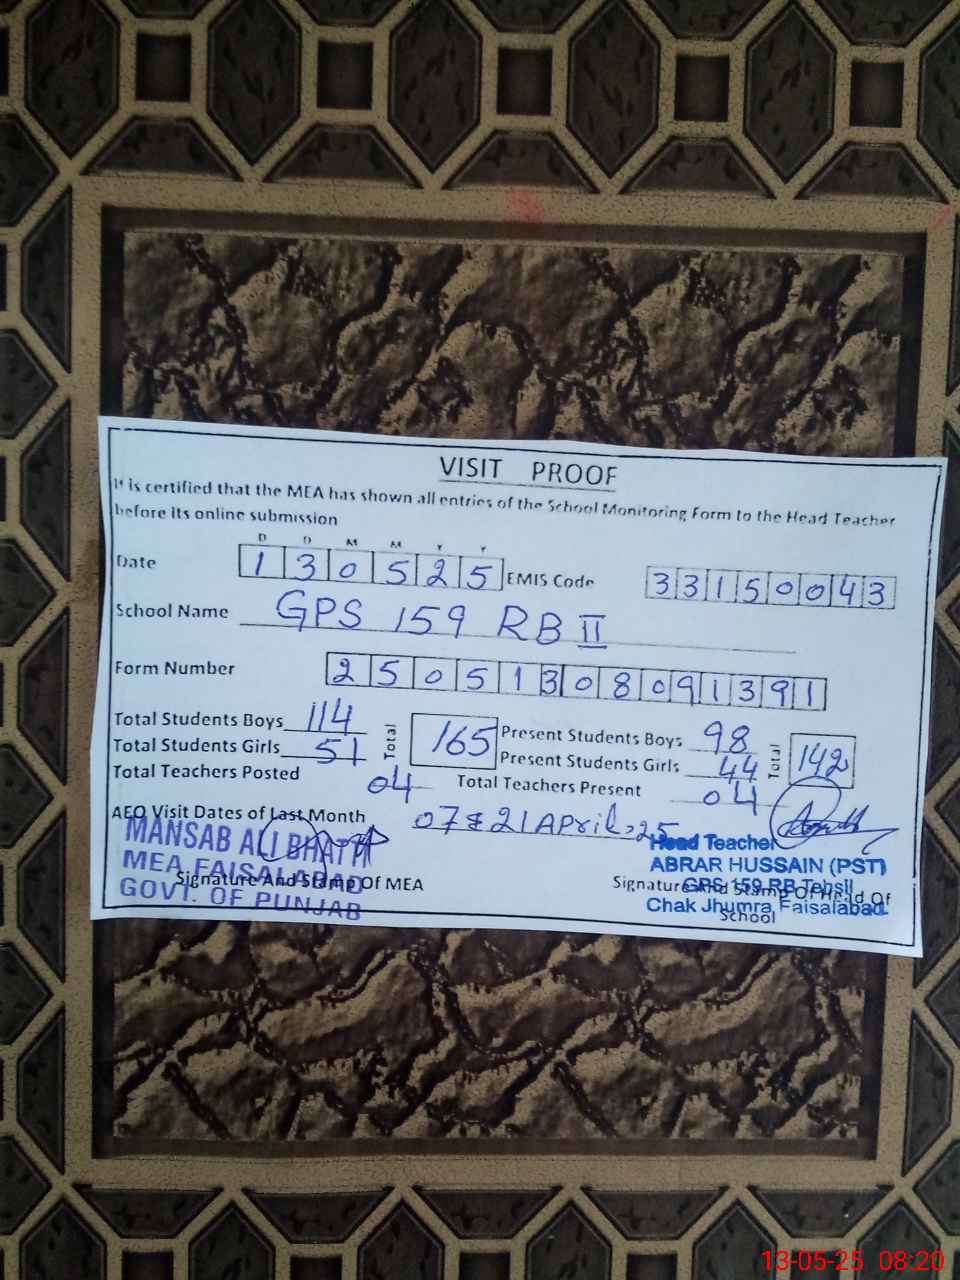 VISIT PROOF
It is certified that the MEA has shown all entries of the School Monitoring Form to the Head Teacher
before its online submission
D D M M Y Y
Date 1 3 0 5 2 5 EMIS Code 3 3 1 5 0 0 4 3
School Name GPS 159 RB II
Form Number 2 5 0 5 1 3 0 8 0 9 1 3 9 1
Total Students Boys 114 Total 165 Present Students Boys 98 Total 142
Total Students Girls 51 Present Students Girls 44
Total Teachers Posted 04 Total Teachers Present 04
AEO Visit Dates of Last Month 07 & 21 April, 25
MANSAB ALI BHATTI
MEA FAISALABAD
GOVT. OF PUNJAB
Signature And Stamp Of MEA
Head Teacher
ABRAR HUSSAIN (PST)
GPS 159 RB Tehsil
Chak Jhumra Faisalabad
Signature And Stamp Of Head Of
School
13-05-25 08:20